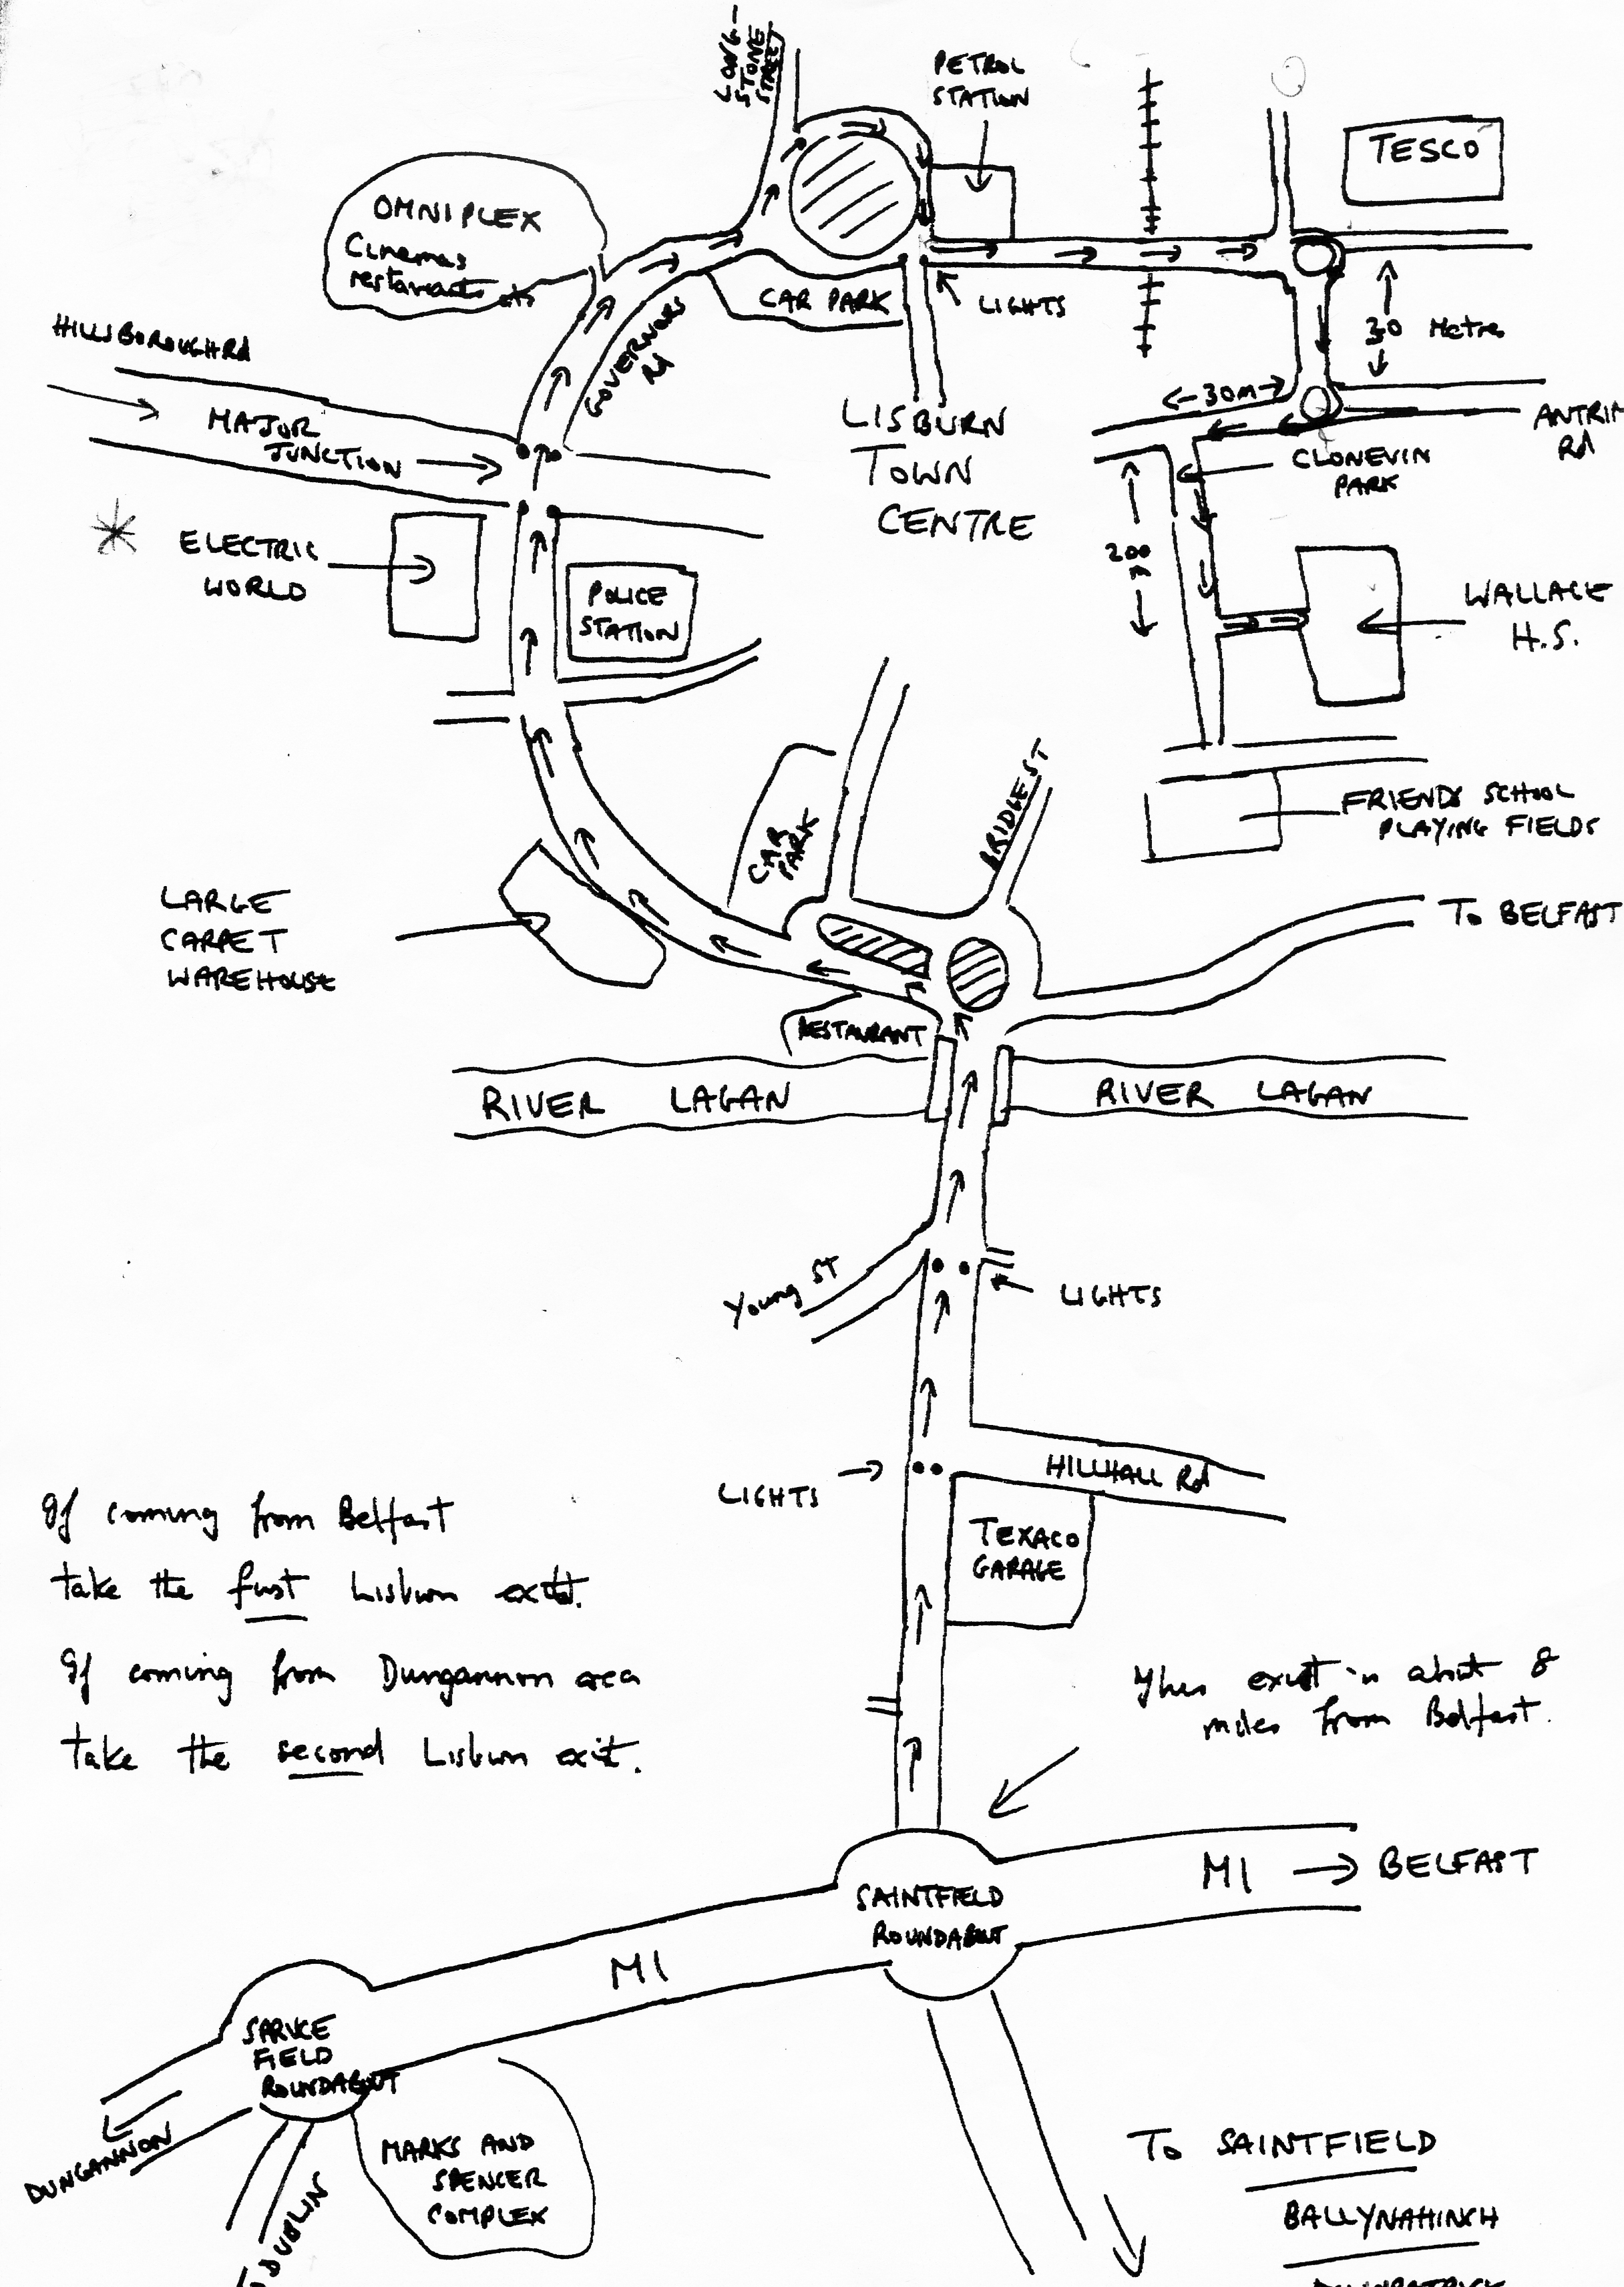 LONG-
STONE
STREET
PETROL
STATION
TESCO
OMNIPLEX
Cinemas
restaurants etc
CAR PARK
LIGHTS
30 Metres
HILLSBOROUGH Rd
GOVERNORS
Rd
MAJOR
JUNCTION
LISBURN
TOWN
CENTRE
30m
ANTRIM
Rd
CLONEVIN
PARK
ELECTRIC
WORLD
POLICE
STATION
200
WALLACE
H.S.
FRIENDS SCHOOL
PLAYING FIELDS
CAR
PARK
BRIDGE ST
LARGE
CARPET
WAREHOUSE
TO BELFAST
RESTAURANT
RIVER LAGAN
RIVER LAGAN
Young ST
LIGHTS
LIGHTS
HILLHALL Rd
TEXACO
GARAGE
If coming from Belfast
take the first Lisburn exit.
If coming from Dungannon area
take the second Lisburn exit.
This exit is about 8
miles from Belfast.
M1 → BELFAST
SAINTFIELD
ROUNDABOUT
M1
SPRUCE
FIELD
ROUNDABOUT
DUNGANNON
DUBLIN
MARKS AND
SPENCER
COMPLEX
TO SAINTFIELD
BALLYNAHINCH